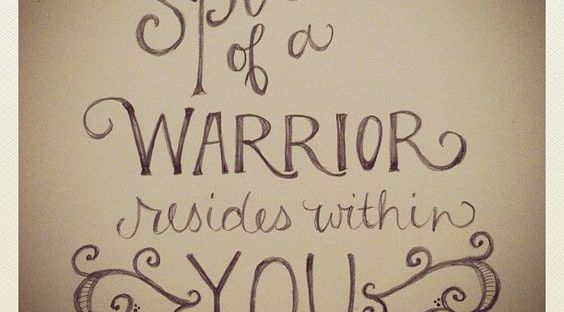 of a
WARRIOR
resides within
YOU